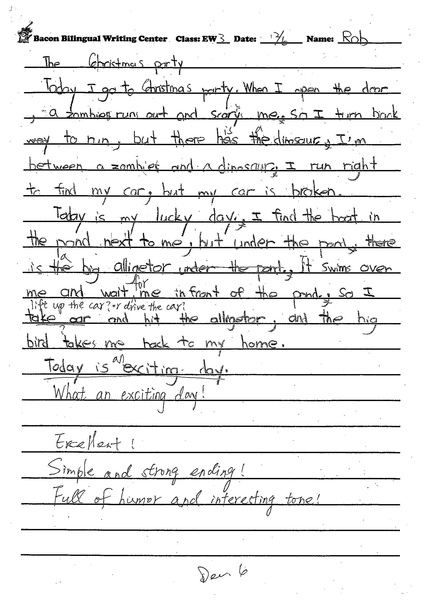 Bacon Bilingual Writing Center Class: EW 3 Date: 12/6 Name: Rob
The Christmas party
Today I go to Christmas party. When I open the door
, a zombies runs out and scary me, so I turn back
way to run, but there is has a the dinosaur, I'm
between a zombies and a dinosaur, I run right
to find my car, but my car is broken.
Today is my lucky day, I find the boat in
the pond next to me, but under the pond, there
is a the big alligetor under the pond, It swims over
me and wait for me in front of the pond, so I
lift up the car? or drive the car?
take car and hit the alligator, and the big
bird takes me back to my home.
Today is an exciting day.
What an exciting day!
Excellent!
Simple and strong ending!
Full of humor and interesting tone!